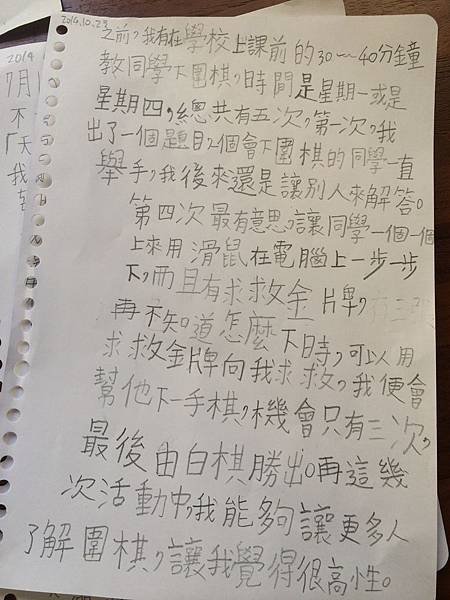 2014.10.29
之前,我有在學校上課前的30~40分鐘
教同學下圍棋,時間是星期一或是
星期四,總共有五次,第一次,我
出了一個題目,2個會下圍棋的同學一直
舉手,我後來還是讓別人來解答。
第四次最有意思,讓同學一個一個
上來用滑鼠在電腦上一步一步
下,而且有求救金牌,
再不知道怎麼下時,可以用
求救金牌向我求救,我便會
幫他下一手棋,機會只有三次,
最後由白棋勝出。再這幾
次活動中,我能夠讓更多人
了解圍棋,讓我覺得很高性。
2014
7月
不
「天
我